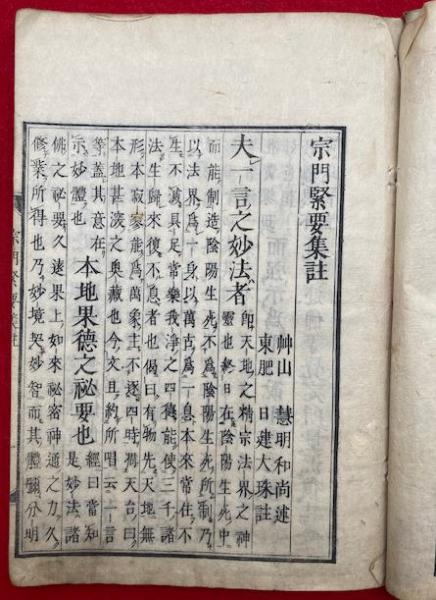 宗門緊要集註
艸山 慧明和尚述
東肥 日建大珠註
夫一言之妙法者 卽天地之精宗法界之神
靈也終日在陰陽生死中
而能制造陰陽生死不爲陰陽生死所制乃
以法界爲一身以萬古爲一息本來常住不
生不滅具足常樂我淨之四德能使三千諸
法生歸來復不息者也偈曰有物先天地無
形本寂寥能爲萬象主不逐四時凋天台曰
本地甚深之奧藏也今文且約所唱云一言
等蓋其意在
宗妙體也
本地果德之祕要也
經曰當知
是妙法諸
佛之祕要久遠果上如來祕密神通之力久
修業所得也乃妙境契妙智而其體彌分明
宗門緊要集註